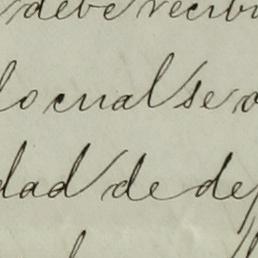 debe recibi
lo cual se o
dad de de